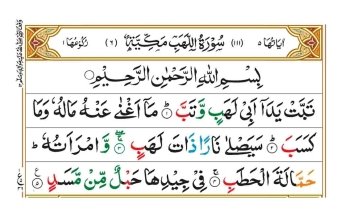 اٰيَاتُهَا ٥ (١١١) سُوْرَةُ اللَّهَبِ مَكِّيَّةٌ (٦) رُكُوْعُهَا ١
بِسْمِ اللّٰهِ الرَّحْمٰنِ الرَّحِيْمِ
تَبَّتْ يَدَآ اَبِيْ لَهَبٍ وَّتَبَّ ١ مَآ اَغْنٰى عَنْهُ مَالُهٗ وَمَا
كَسَبَ ٢ سَيَصْلٰى نَارًا ذَاتَ لَهَبٍ ٣ وَّامْرَاَتُهٗ
حَمَّالَةَ الْحَطَبِ ٤ فِيْ جِيْدِهَا حَبْلٌ مِّنْ مَّسَدٍ ٥